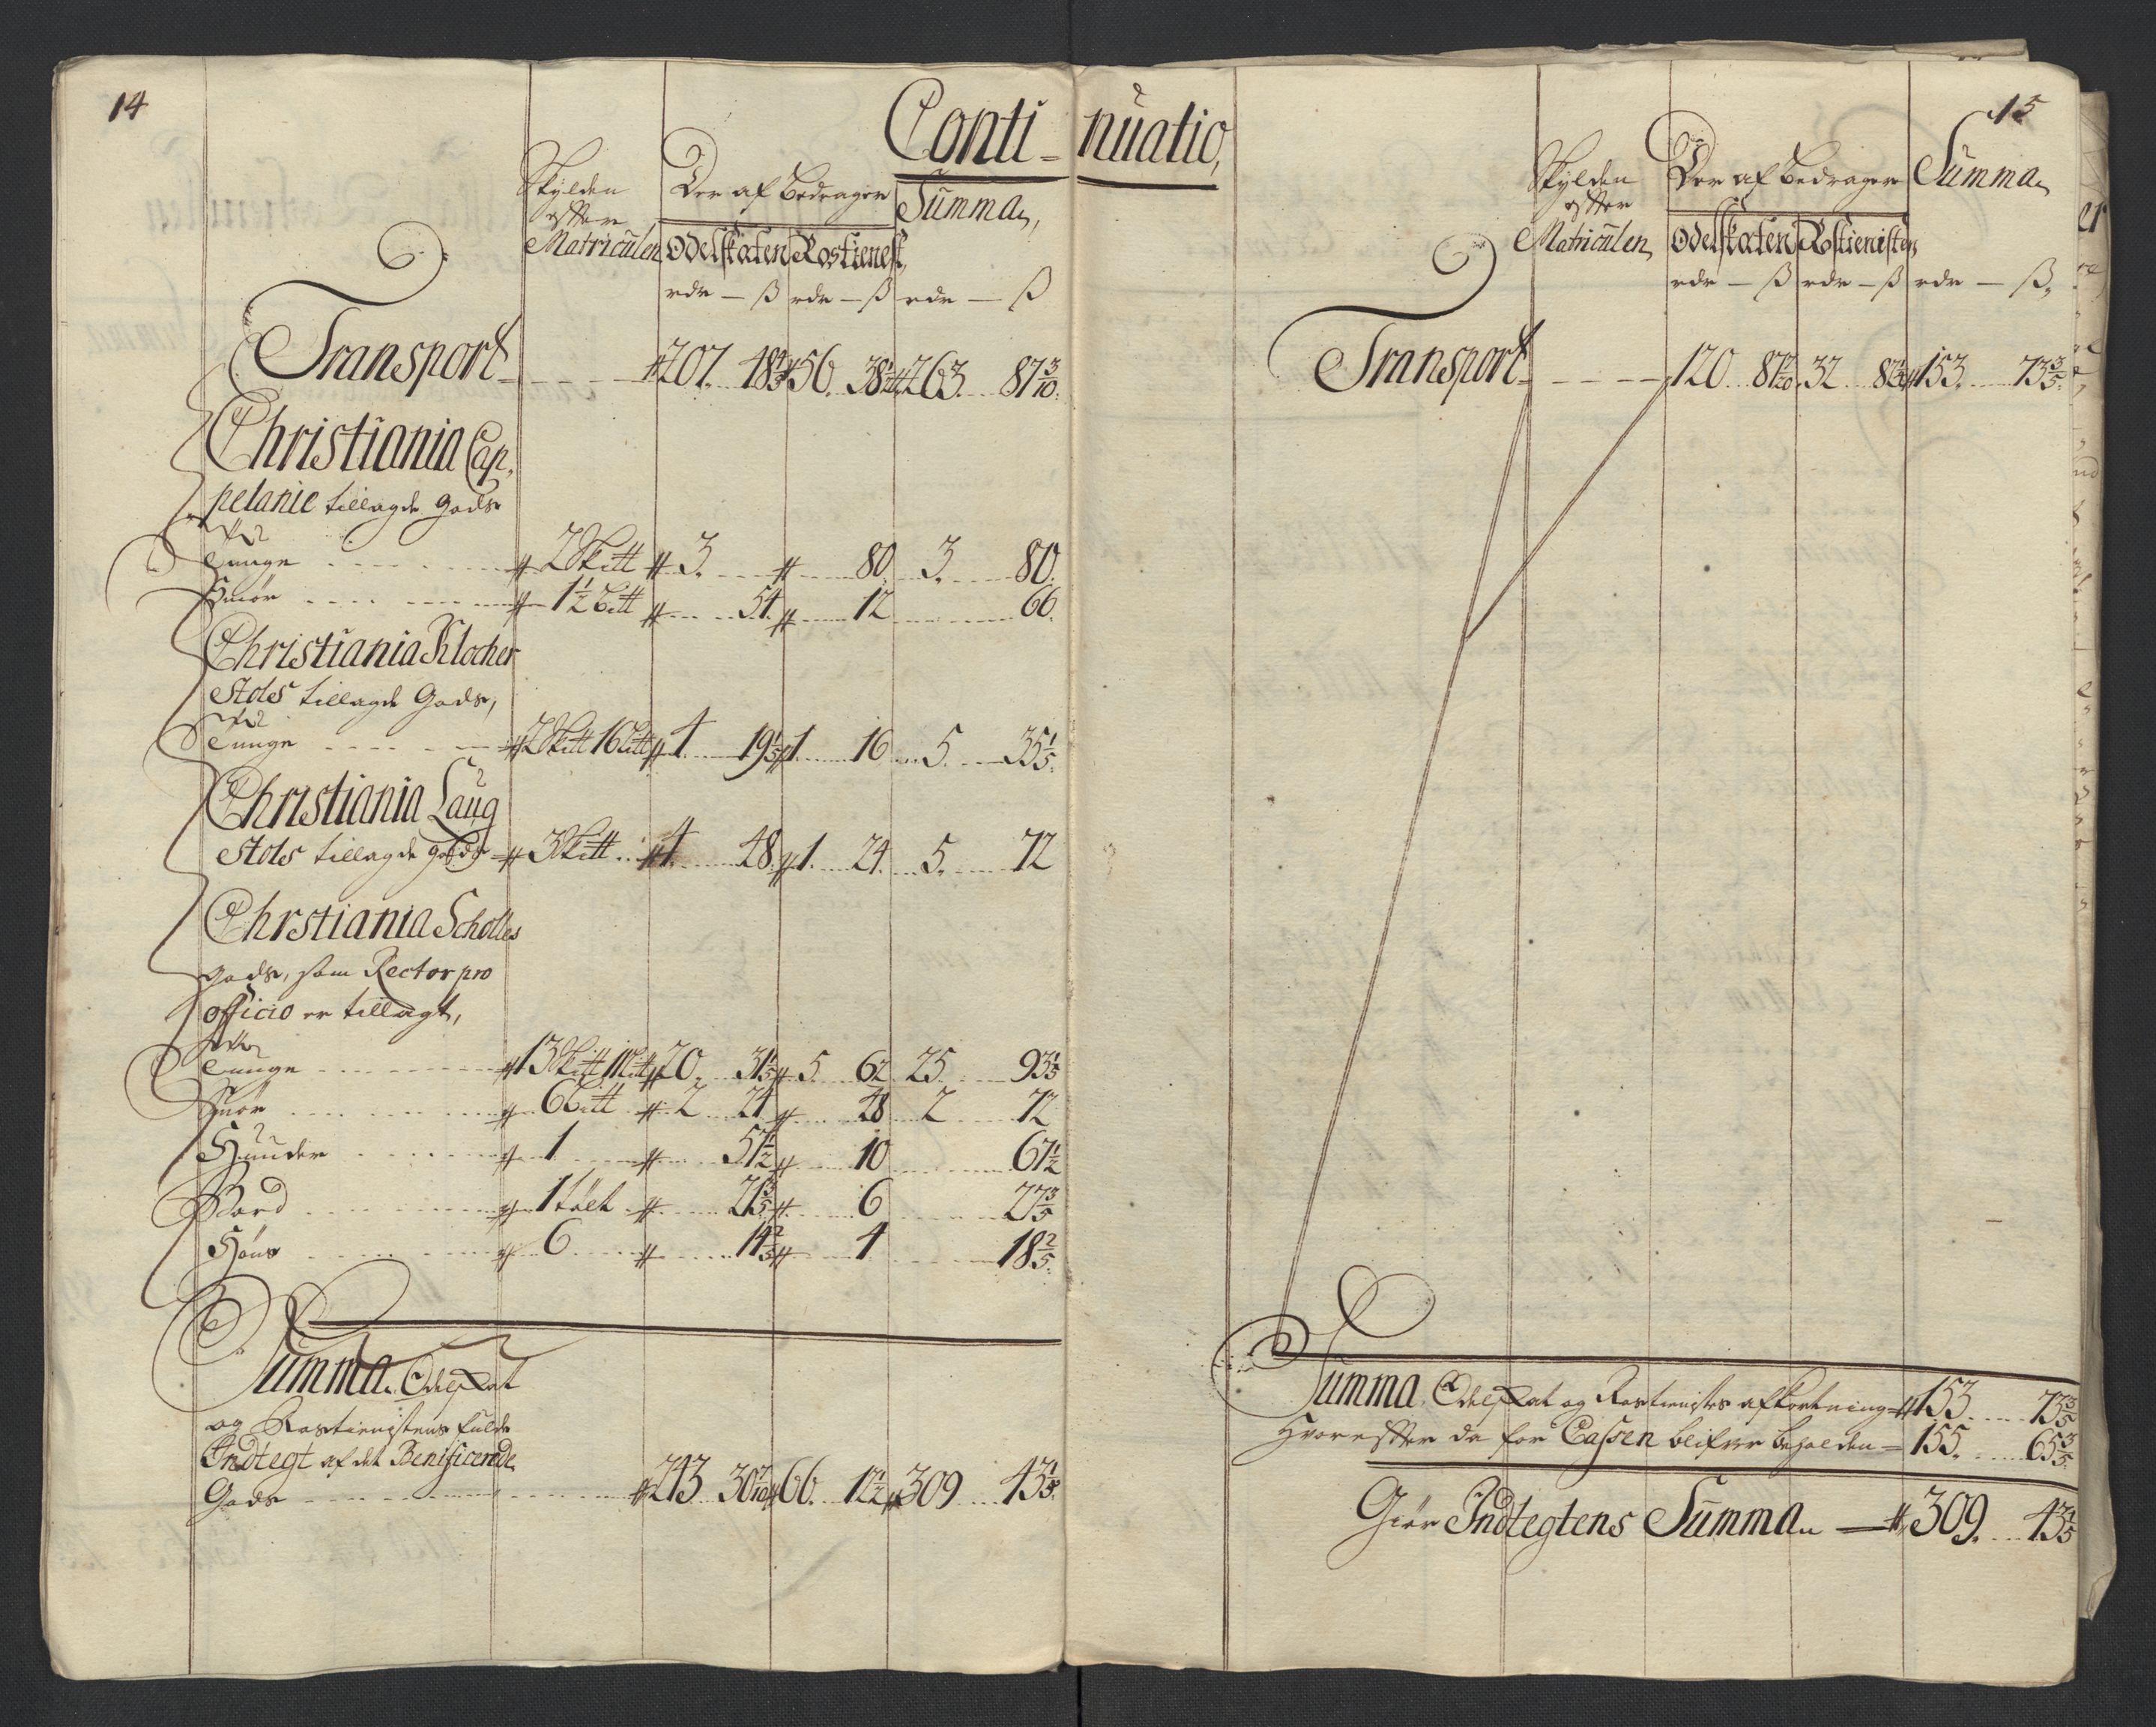 14
Conti-
Skylden efter Matriculen
Der af bedrager
Summa,
Odelskaten Rostienest,
rdr — ß rdr — ß rdr — ß
Transport — 207. 48 56. 38 263. 87 3/10.
Christiania Cap,
pelanie tillagde Gods
Tunge 2 Skitt 3. 80 3. 80.
Smør 1 1/2 Bitt 54. 12 66.
Christiania Klocher
Stols tillagde Gods,
Tunge 2 Skitt 16 4 19 1/5 1 16 5. 35 1/5.
Christiania Laug
Stols tillagde Gods 3 Skitt 4 48. 1. 24. 5. 72
Chrstiania Scholes
Gods, som Rector pro
officio er tillagt,
Tunge 13 Skitt 20. 31 1/5 5 62 25 93 1/5
Smør 6 Bitt 2 24 28 2 72
Huuder 1 57 1/2 10 67 1/2
Bord 1 tolt 21 3/5 6 27 3/5
Høns 6 14 2/5 4 18 2/5.
Summa Odelskat
og Rostienistens fulde
Indtegt af det Benificerede
Gods 243 30 7/10 66. 12 1/2 309 43 1/5.
15
nuatio,
Skylden efter Matriculen,
Der af bedrager
Summa,
Odelskaten Rostienisten,
rdr — ß rdr — ß rdr — ß,
Transport — 120 87 32 82 153. 73 3/5.
Summa Odelskat og Rostienistes afkortning 153. 73 3/5
Hvorefter da for Cassen blifver beholden = 155. 65 3/5.
Giør Indtegtens Summa — 309. 43 1/5